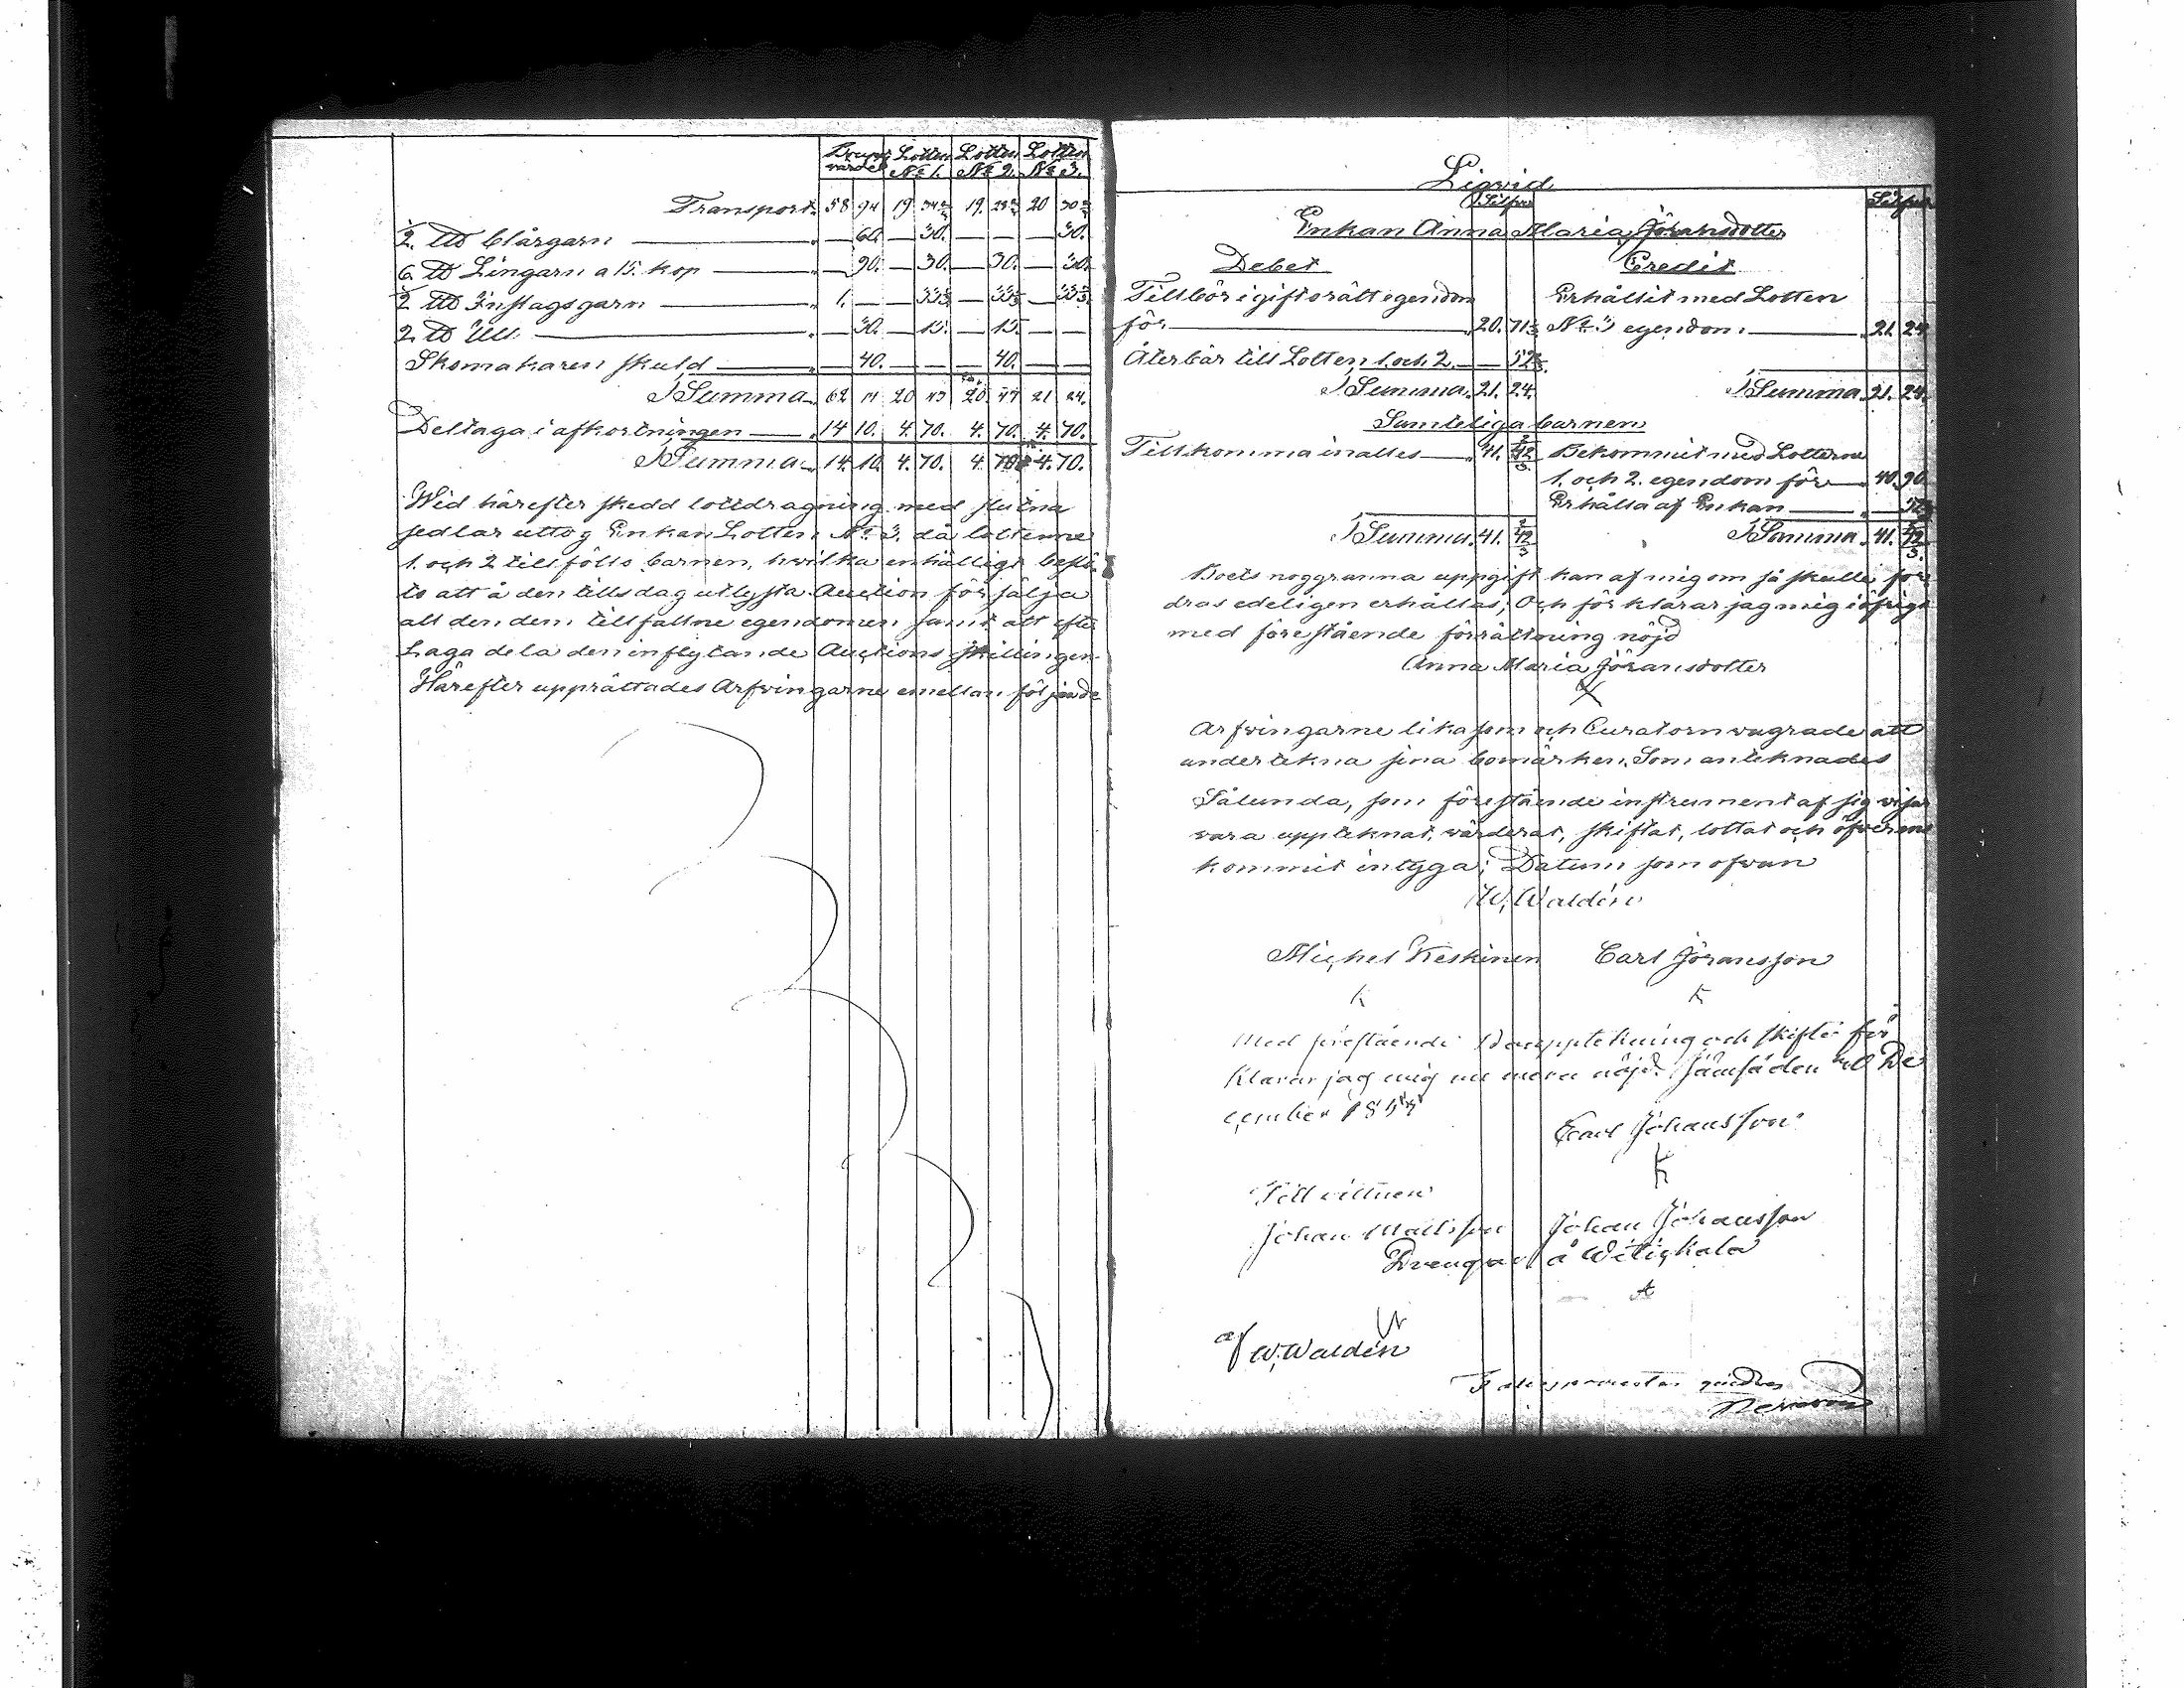 Lotten Lotten Lotten
värdet No 1. No 2. No 3.
Transport. 58 94 19 20
2. ℔ blårgarn — 60. — 30. — — — 30.
6. ℔ Lingarn a 15. kop — 90. — 30. — 30. — 30.
2 ℔ Inslagsgarn 1. — — 33⅓ — 33⅓ — 33⅓
2. ℔ Ull. — 30. — 15. — 15. — —
Skomakaren skuld — 40. — — — 40. — —
Summa 62 20 20 21 24.
Deltaga i afkortningen 14 10. 4. 70. 4. 70. 4. 70.
Summa 14. 10 4. 70. 4. 4. 70.
Wid härefter skedd lottdragning med slutna
sedlar uttog Enkan Lotten No 3. då lotterne
1. och 2 tillföllo barnen, hvilka enhälligt beslö-
to att å den tills dag utlysta Auction försälja
all den dem tillfallne egendomen samt att efter
Laga dela den inflytande Auctions skillingen.
Härefter upprättades Arfvingarne emellan följande
Liqvid
Silfver Silfver
Enkan Anna Maria Jöransdotter
Debet Credit
Tillhör i giftorätt egendom Erhållit med Lotten
för 20. 71⅓ No 3 egendom 21. 24
Återbär till Lotten 1. och 2. — 52⅔.
Summa. 21. 24. Summa 21. 24.
Samteliga barnen
Tillkomma inalles 41. 42⅔ Bekommit med Lotterne
1. och 2. egendom för 40. 90.
Erhålla af Enkan — 52⅔
Summa. 41. 42⅔ Summa. 41. 42⅔.
Boets noggranna uppgift kan af mig om så skulle for-
dras edeligen erhållas; Och förklarar jag mig i öfrigt
med förestående förrättning nöjd
Anna Maria Jöransdotter
X
Arfvingarne likasom och Curatorn vägrade att
underteckna sina bomärken. Som antecknades
Sålunda, som förestående instrument af sig visar
vara upptecknat, värderat, skiftat, lottat och öfverens
kommit intyga; Datum som ofvan
W. Waldén
Michel Keskinen Carl Jöransson
K K
Med förestående Bouppteckning och skifte för
klarar jag mig nu mera nöjd. Jämsä den De
cember
Carl Johansson
K
Till vittnen
Johan Mattsson Johan Johansson
Drengar å Witiskala
A
af W. Waldén